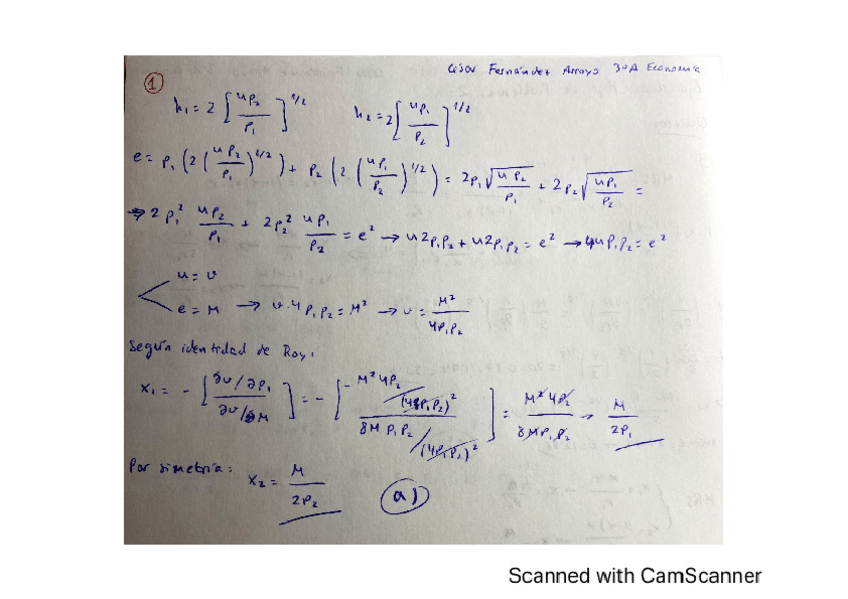 César Fernández Arroyo 3ºA Economía
①
h₁ = 2 [up₂/p₁]^1/2    h₂ = 2 [up₁/p₂]^1/2
e = p₁ (2 (up₂/p₁)^1/2) + p₂ (2 (up₁/p₂)^1/2) = 2p₁ √(u p₂/p₁) + 2p₂ √(up₁/p₂) =
→ 2p₁² up₂/p₁ + 2p₂² up₁/p₂ = e² → u2p₁p₂ + u2p₁p₂ = e² → 4up₁p₂ = e²
u = v
e = M → v·4p₁p₂ = M² → v = M²/4p₁p₂
Según identidad de Roy:
x₁ = - [∂v/∂p₁ / ∂v/∂M] = - [-M²4p₂/(4p₁p₂)² / 8Mp₁p₂/(4p₁p₂)²] = M²4p₂/8Mp₁p₂ → M/2p₁
Por simetría: x₂ = M/2p₂    a)
Scanned with CamScanner